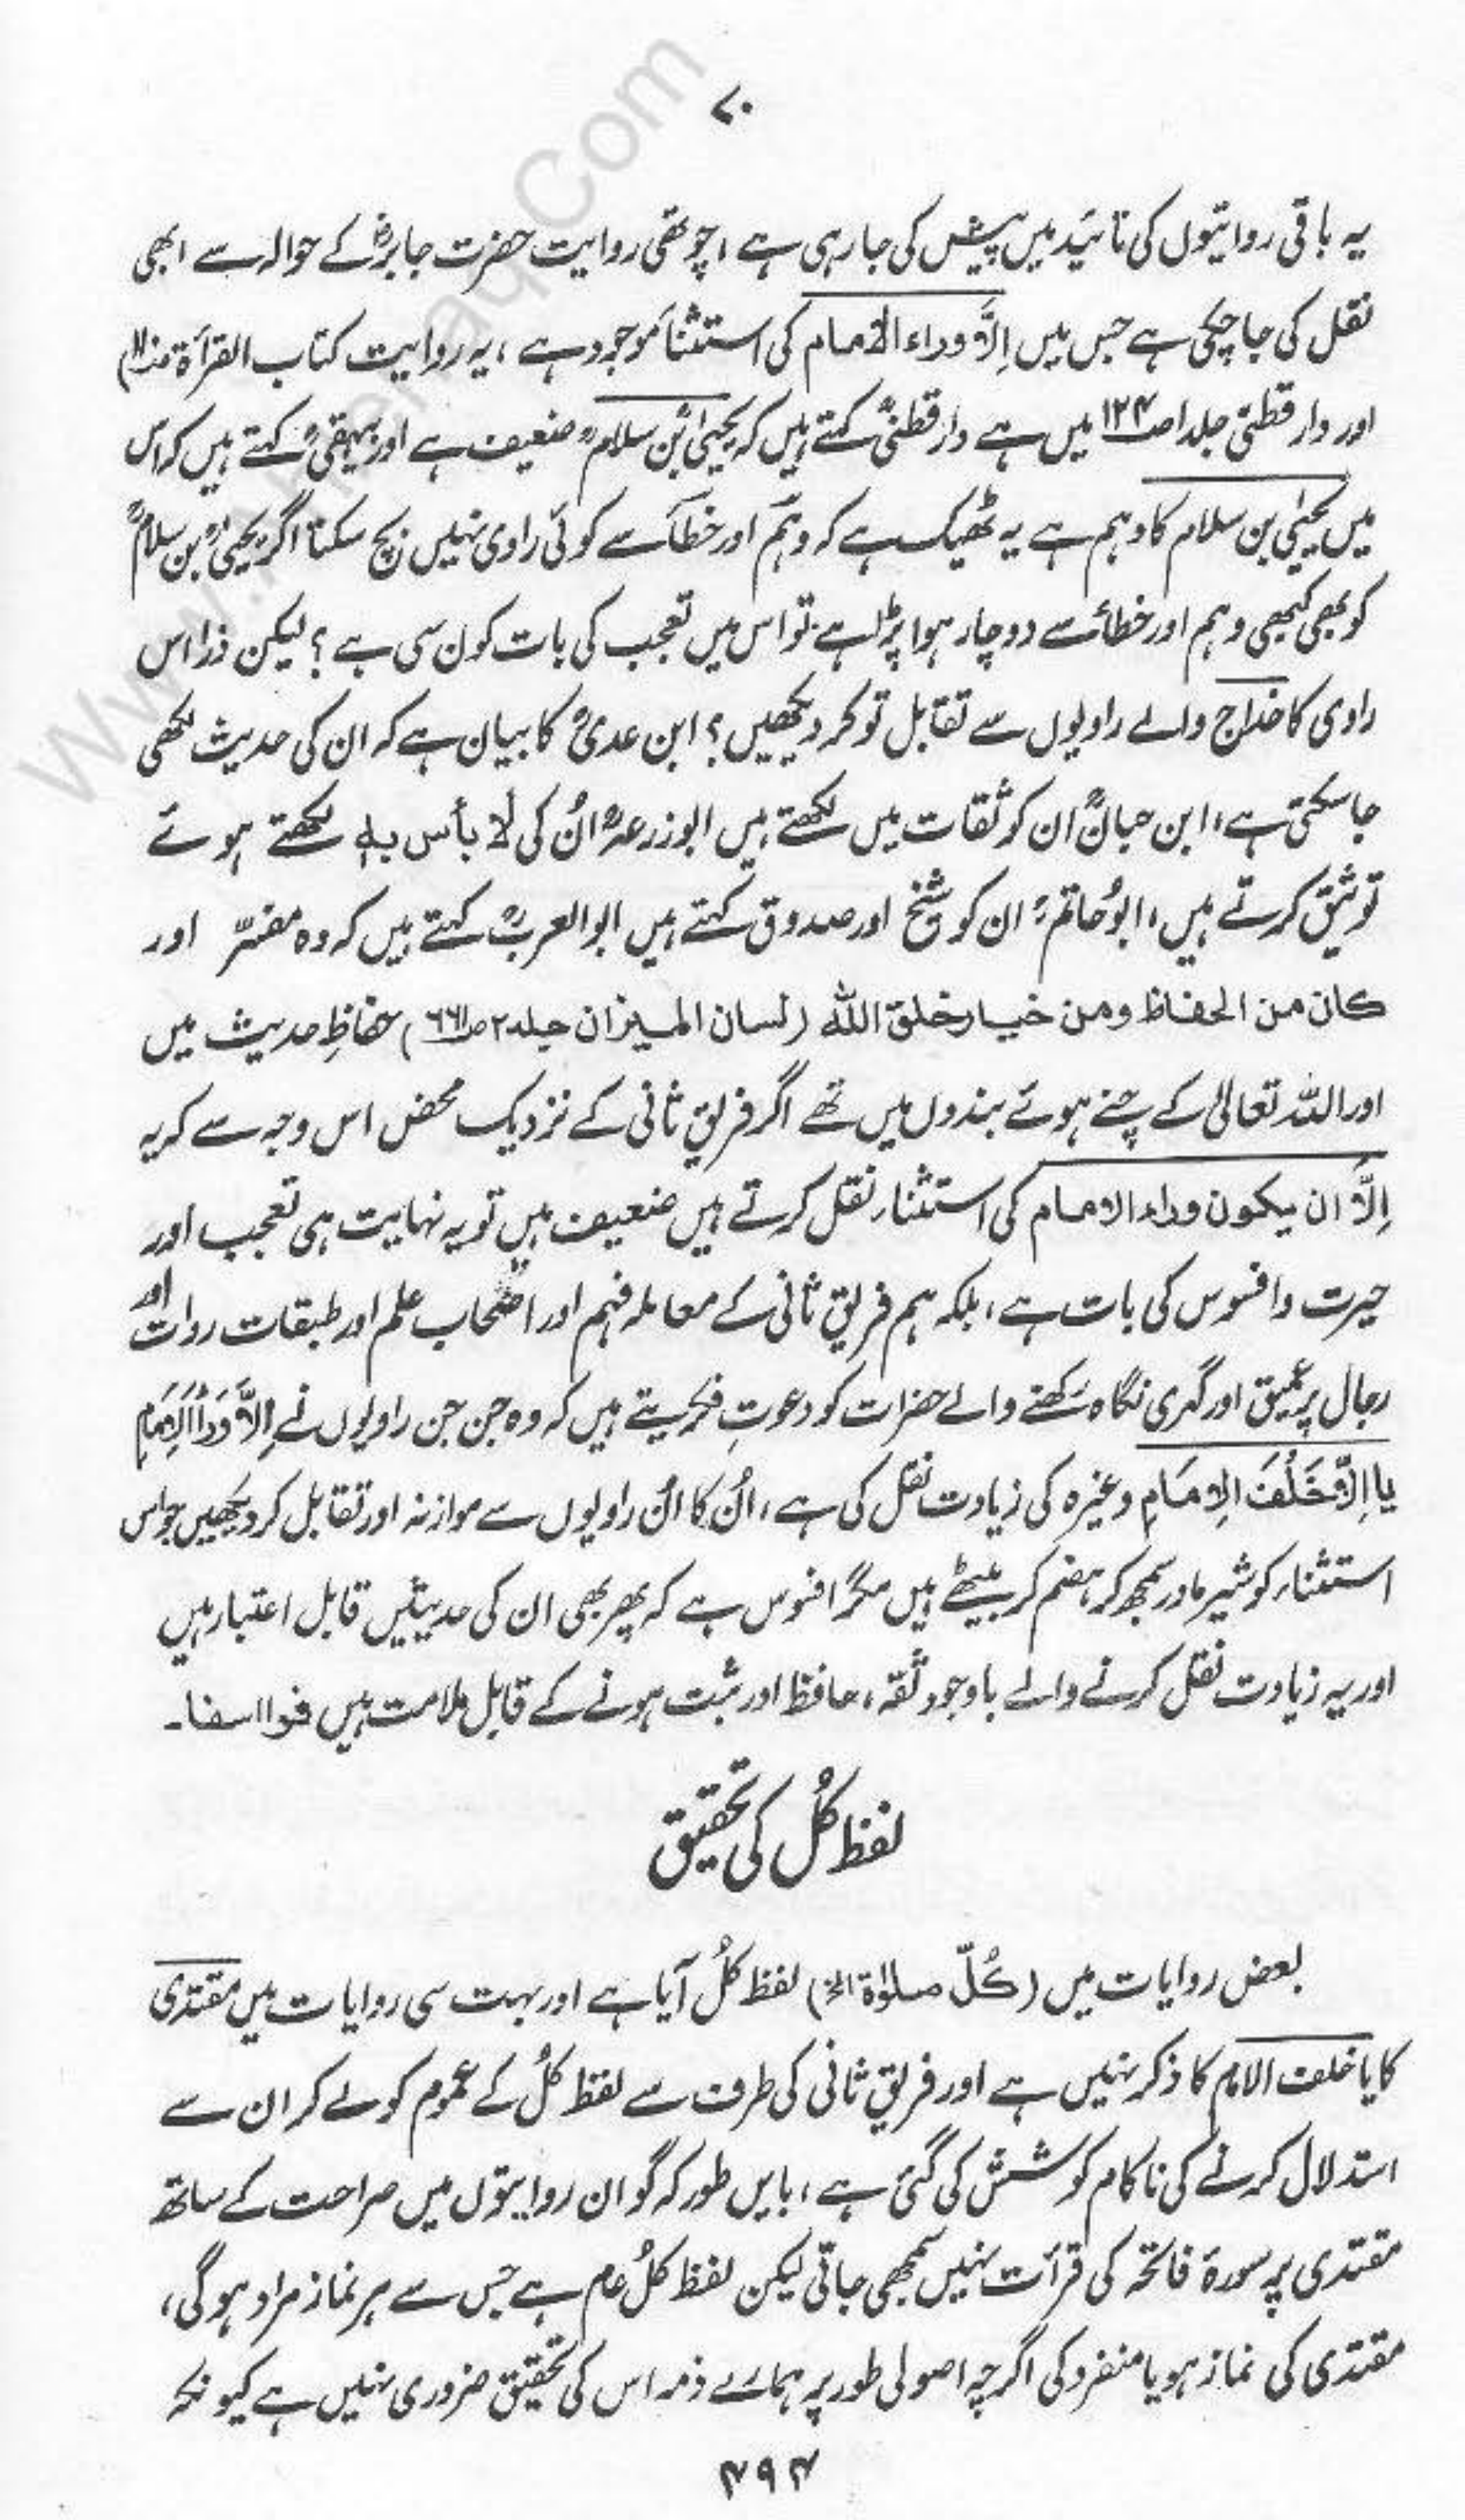 ۷۰
یہ باقی روایتوں کی تائید میں پیش کی جا رہی ہے ، چوتھی روایت حضرت جابرؓ کے حوالہ سے ابھی
نقل کی جا چکی ہے جس میں اِلَّا وراء الامام کی استثناء موجود ہے ، یہ روایت کتاب القرأة
اور دار قطنی جلد ا ص۱۲۴ میں ہے دارقطنیؒ کہتے ہیں کہ یحییٰؒ بن سلامؒ ضعیف ہے اور بیہقیؒ کہتے ہیں کہ اس
میں یحییٰ بن سلام کا وہم ہے یہ ٹھیک ہے کہ وہم اور خطأ سے کوئی راوی نہیں بچ سکتا اگر یحییٰؒ بن سلامؒ
کو بھی کبھی وہم اور خطائے سے دو چار ہوا پڑا ہے تو اس میں تعجب کی بات کون سی ہے ؟ لیکن ذرا اس
راوی کا خداج والے راویوں سے تقابل تو کر دیکھیں ؟ ابن عدیؒ کا بیان ہے کہ ان کی حدیث لکھی
جا سکتی ہے ، ابن حبانؒ ان کو ثقات میں لکھتے ہیں ابو زرعہؒ اُن کی لا بأس بہٖ لکھتے ہوئے
توثیق کرتے ہیں ، ابو حاتمؒ ان کو شیخ اور صدوق کہتے ہیں ابو العربؒ کہتے ہیں کہ وہ مفسّر اور
کان من الحفاظ ومن خیار خلق اللہ (لسان المیزان جلد ۲ ص۲۶۱) حفاظِ حدیث میں
اور اللہ تعالیٰ کے چنے ہوئے بندوں میں تھے اگر فریق ثانی کے نزدیک محض اس وجہ سے کہ یہ
اِلَّا ان یکون وراء الامام کی استثناء نقل کرتے ہیں ضعیف ہیں تو یہ نہایت ہی تعجب اور
حیرت و افسوس کی بات ہے ، بلکہ ہم فریق ثانی کے معاملہ فہم اور اصحاب علم اور طبقات روات اور
رجال پر عمیق اور گہری نگاہ رکھنے والے حضرات کو دعوتِ فکر دیتے ہیں کہ وہ جن جن راویوں نے اِلَّا وَرَاءَ الْاِمَامِ
یا اِلَّا خَلْفَ الامَامِ وغیرہ کی زیادت نقل کی ہے ، اُن کا اُن راویوں سے موازنہ اور تقابل کر دیکھیں جو اس
استثناء کو شیر مادر سمجھ کر ہضم کر بیٹھے ہیں مگر افسوس ہے کہ پھر بھی ان کی حدیثیں قابل اعتبار ہیں
اور یہ زیادت نقل کرنے والے باوجود ثقہ ، حافظ اور ثبت ہونے کے قابل ملامت ہیں فوااسفا ۔
لفظ کُل کی تحقیق
بعض روایات میں (کُلّ صلوٰۃ الخ) لفظ کُل آیا ہے اور بہت سی روایات میں مقتدی
کا یا خلف الامام کا ذکر نہیں ہے اور فریق ثانی کی طرف سے لفظ کُل کے عموم کو لے کر ان سے
استدلال کرنے کی ناکام کوشش کی گئی ہے ، بایں طور کہ گو ان روایتوں میں صراحت کے ساتھ
مقتدی پر سورۂ فاتحہ کی قرأت نہیں سمجھی جاتی لیکن لفظ کُل عام ہے جس سے ہر نماز مراد ہو گی ،
مقتدی کی نماز ہو یا منفرد کی اگرچہ اصولی طور پر ہمارے ذمہ اس کی تحقیق ضروری نہیں ہے کیونکہ
۴۹۴